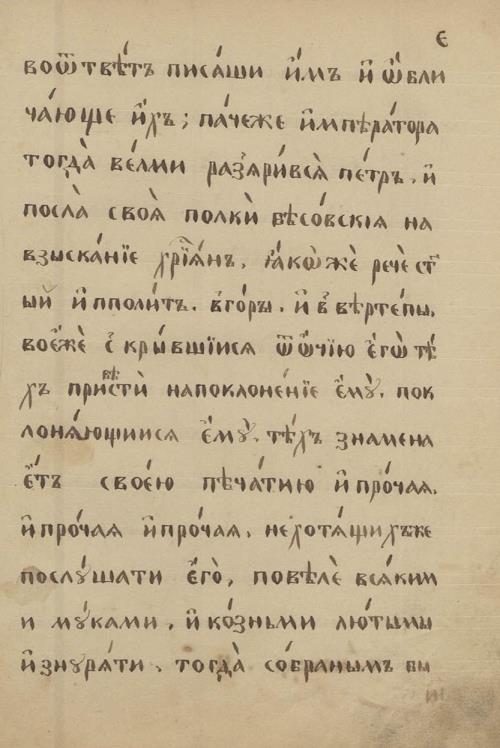 є
воѿвѣ́тъ писа́ши и҆́мъ и҆ ѡ҆бли
ча́юще и҆́хъ; па́чеже и҆мпѣра́тора
тогда̀ ве́лми разꙗри́всѧ пе́тръ. и҆
посла̀ своѧ̀ полкѝ бѣсо́вскіѧ на
взыска́нїе хрⷭ҇тїѧ́нъ. ꙗ҆́коже речѐ ст҃
ый и҆пполи́тъ. вго́ры. и҆ в вѣрте́пы.
воє́же скры́вшїисѧ ѿ ѻ҆́чїю є҆гѡ̀ тѣ́
хъ привѣстѝ напоклоне́нїе є҆мꙋ̀. пок
лонѧ́ющиисѧ є҆мꙋ̀. тѣ́хъ знамена
є҆́тъ свое́ю пѣча́тию и҆ про́чая.
и҆ про́чая и҆ про́чая. нехотѧ́щихъже
послꙋ́шати є҆го̀, повѣлѐ всѧ́ким
и мꙋ́ками. и҆ ко́зньми лю́тыми
и҆знурѧ́ти. тогда̀ со́бранымъ бы